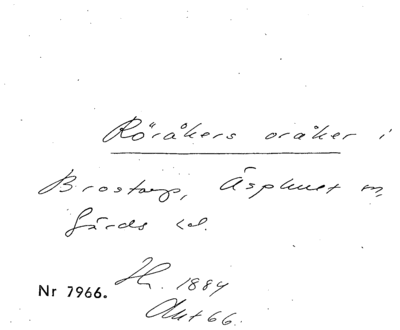 Röråkers oråker i
Brostorp, Äsphult sn,
Gärds hd.
Nr 7966. Hr. 1884
Akt 66.